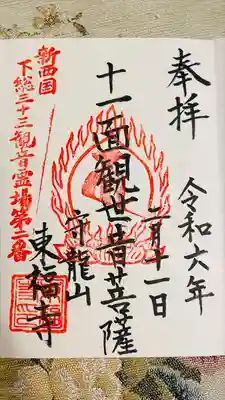 奉拝
令和六年
二月十一日
十一面観世音菩薩
守龍山
東福寺
新四国
下総三十三観音霊場第二番